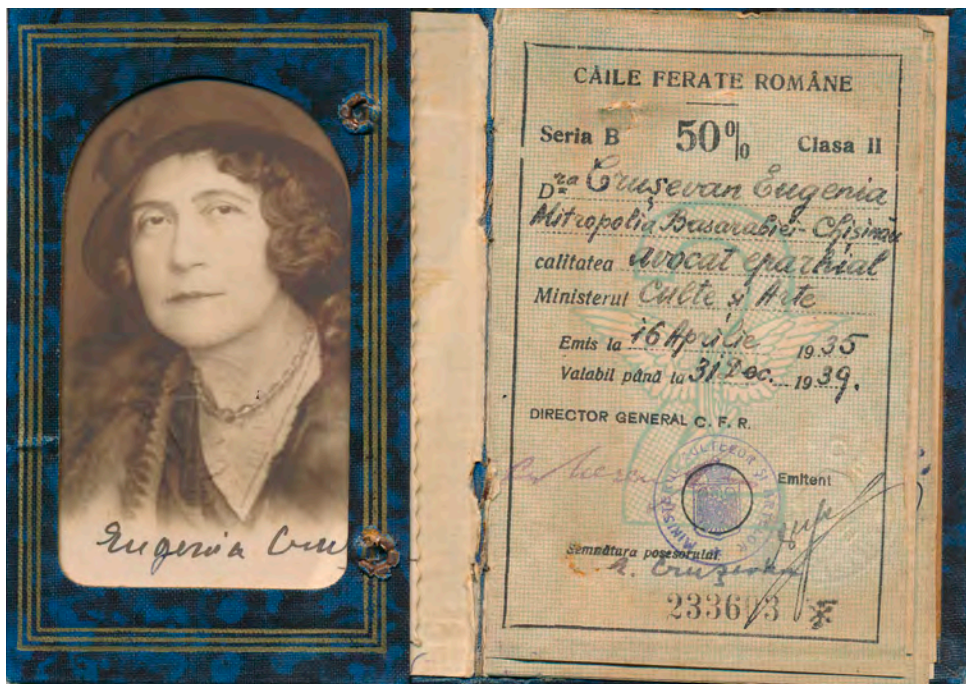 Eugenia Cru
CĂILE FERATE ROMÂNE
Seria B 50% Clasa II
D ra Crușevan Eugenia
Mitropolia Basarabiei-Chișinău
calitatea avocat eparhial
Ministerul Culte și Arte
Emis la 16 Aprilie 1935
Valabil până la 31 Dec. 1939.
DIRECTOR GENERAL C. F. R.
Emitent
MINISTERUL CULTELOR ȘI ARTELOR
Semnătura posesorului
E. Crușevan
233693